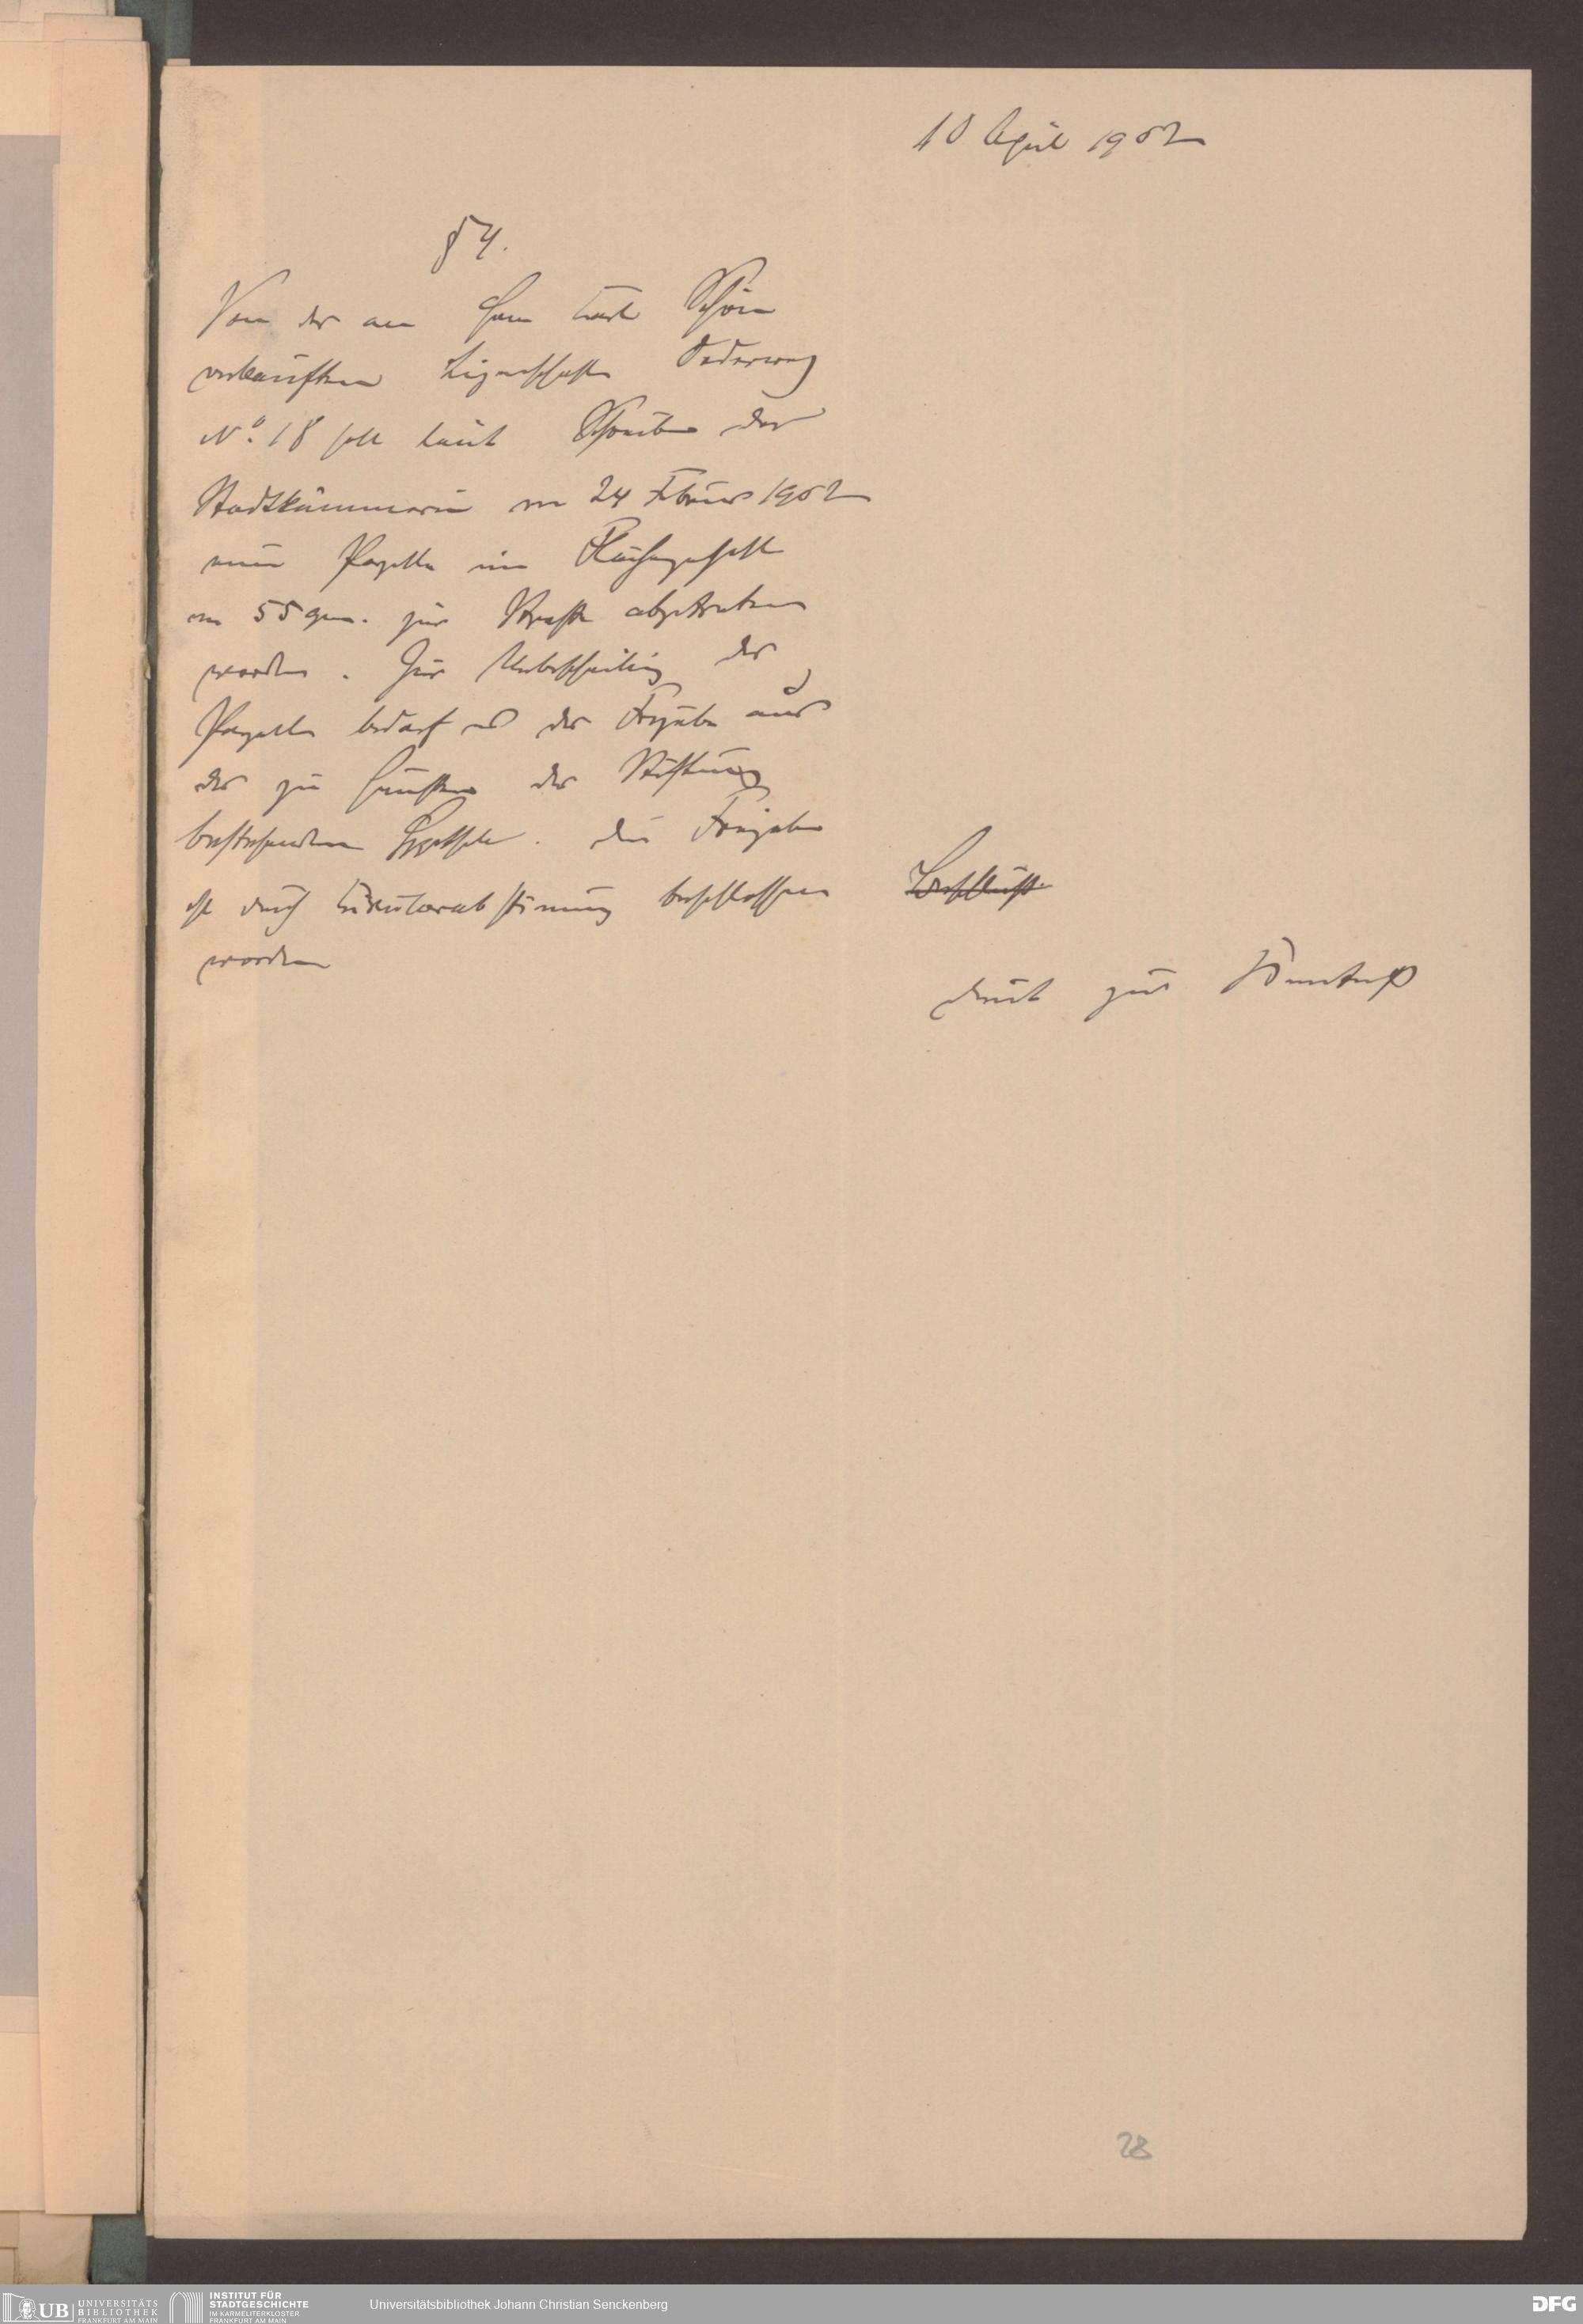 10 April 1902
§ 4.
Von der an Herrn Carl Schön
verkauften Liegenschaft Oederweg
No. 18 soll laut Schreiben der
Stadtkämmerei vom 24 Februar 1902
eine Parzelle im Flächengehalt
von 55 qm. zur Straße abgetreten
werden. Zur Überschreibung der
Parzelle bedarf es der Freigabe aus
der zu Gunsten der Stiftung
bestehenden Hypothek. Die Freigabe
ist durch Cirkularabstimmung beschlossen
worden
Beschluß.
dient zur Kenntniß
28
UB UNIVERSITÄTS BIBLIOTHEK FRANKFURT AM MAIN
INSTITUT FÜR STADTGESCHICHTE IM KARMELITERKLOSTER FRANKFURT AM MAIN
Universitätsbibliothek Johann Christian Senckenberg
DFG